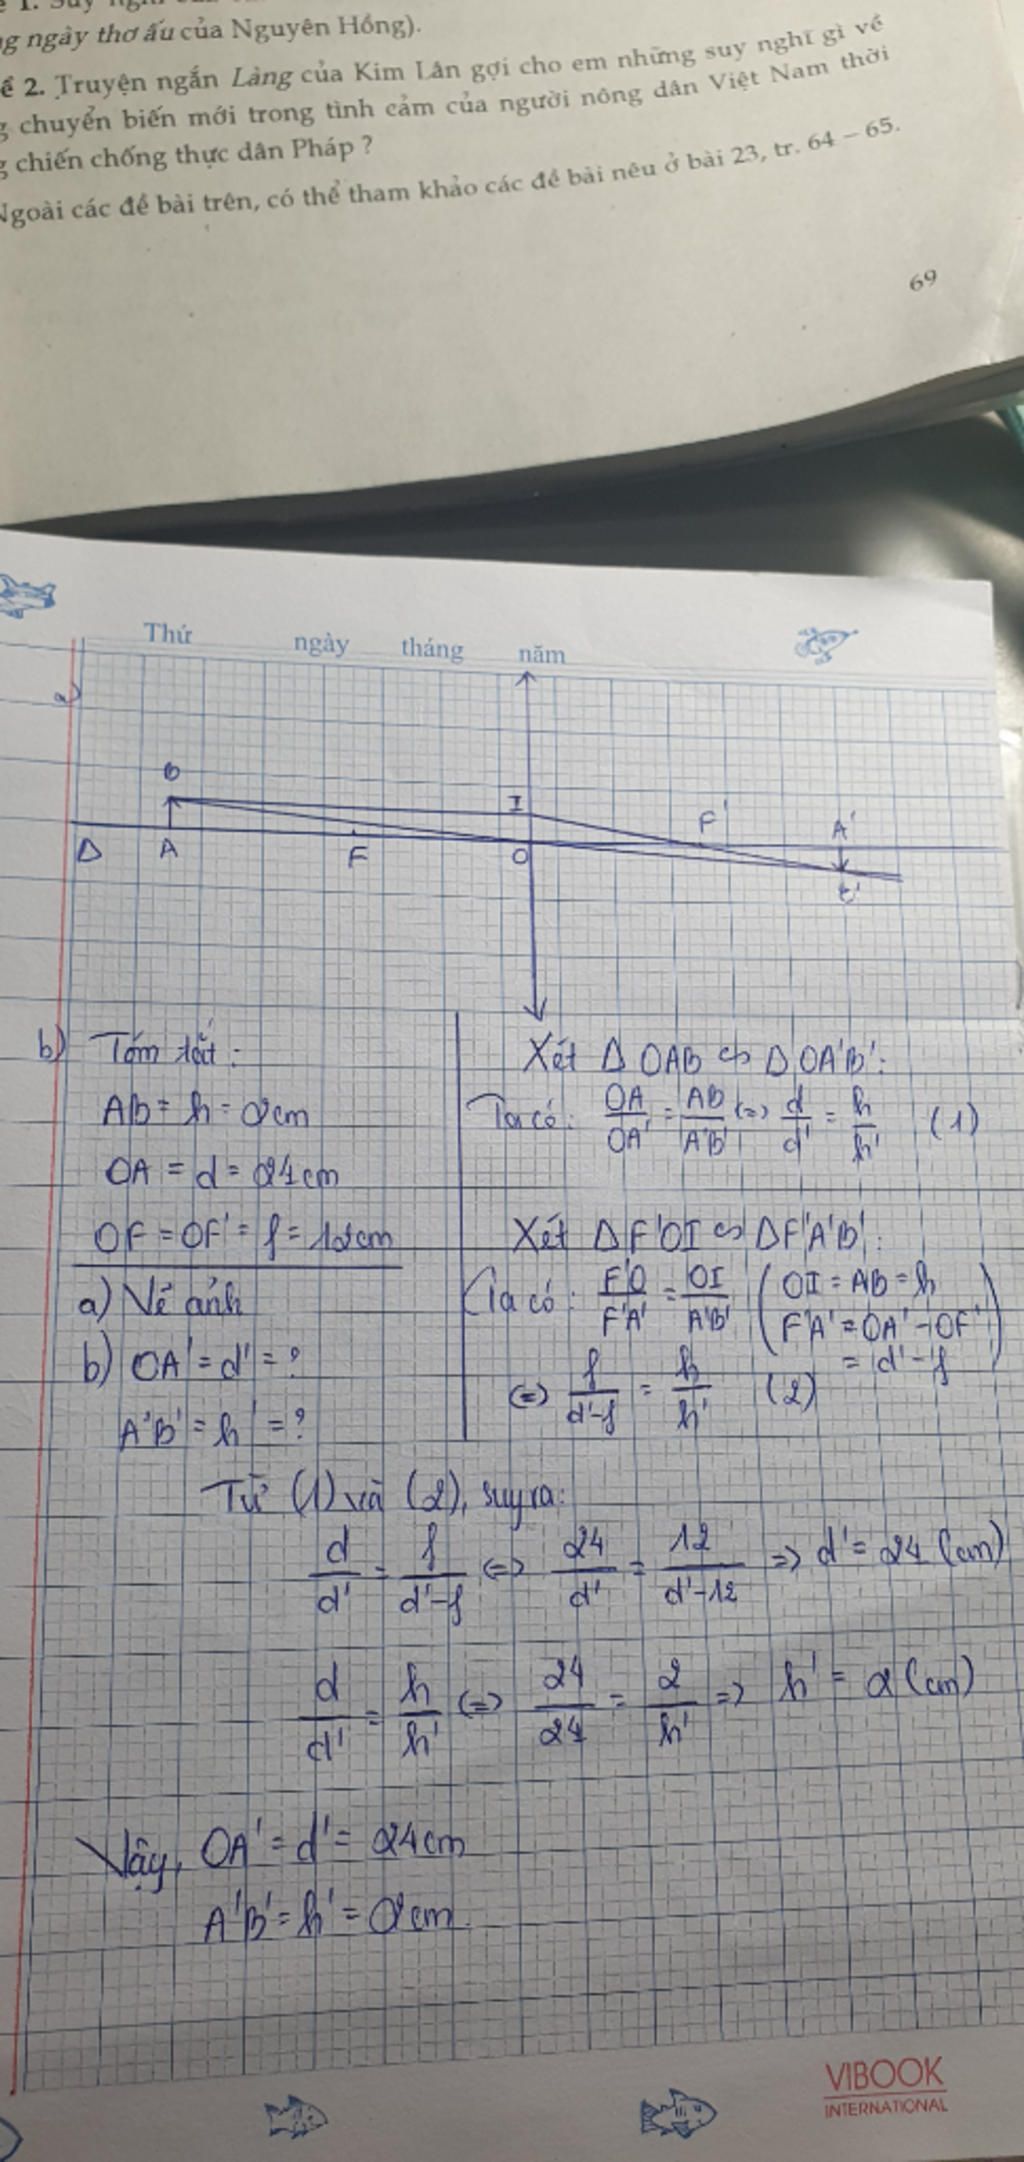 ng ngày thơ ấu của Nguyên Hồng).
ề 2. Truyện ngắn Làng của Kim Lân gợi cho em những suy nghĩ gì về
g chuyển biến mới trong tình cảm của người nông dân Việt Nam thời
g chiến chống thực dân Pháp ?
Ngoài các đề bài trên, có thể tham khảo các đề bài nêu ở bài 23, tr. 64 – 65.
69
Thứ ngày tháng năm
a)
B I F' A'
Δ A F O B'
b) Tóm tắt:
AB = h = 2cm
OA = d = 24cm
OF = OF' = f = 12cm
a) Vẽ ảnh
b) OA' = d' = ?
A'B' = h' = ?
Xét Δ OAB ∽ Δ OA'B':
Ta có: OA/OA' = AB/A'B' (=) d/d' = h/h' (1)
Xét ΔF'OI ∽ ΔF'A'B':
Ta có: F'O/F'A' = OI/A'B' (OI = AB = h
F'A' = OA' - OF'
= d' - f)
(=) f/d'-f = h/h' (2)
Từ (1) và (2), suy ra:
d/d' = f/d'-f (=) 24/d' = 12/d'-12 => d' = 24 (cm)
d/d' = h/h' (=) 24/24 = 2/h' => h' = 2 (cm)
Vậy, OA' = d' = 24cm
A'B' = h' = 2cm
VIBOOK
INTERNATIONAL